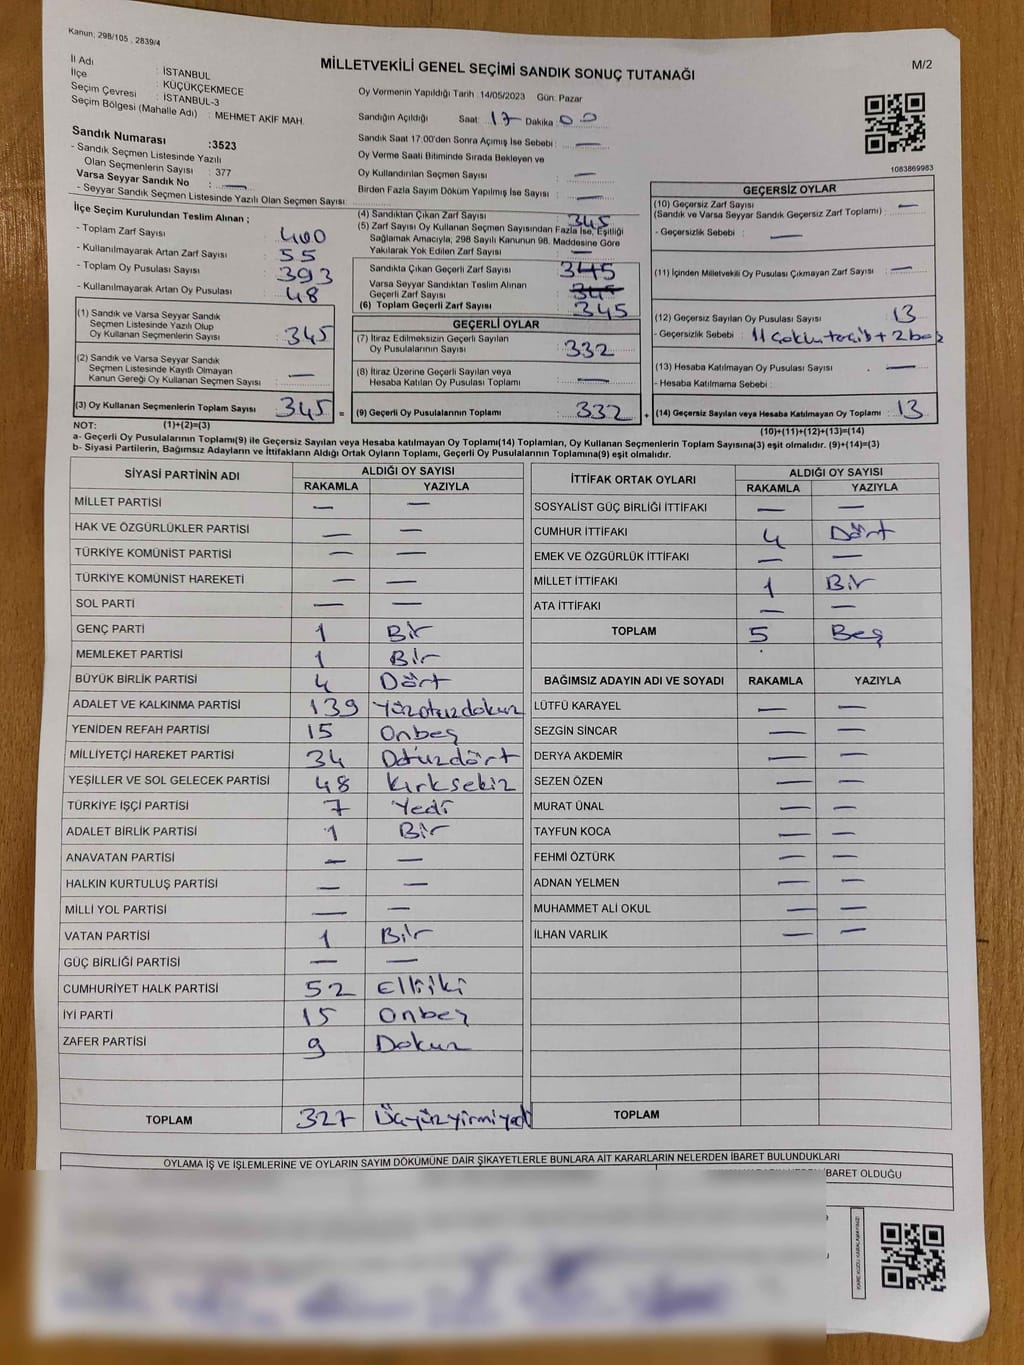 Kanun; 298/105 , 2839/4
MİLLETVEKİLİ GENEL SEÇİMİ SANDIK SONUÇ TUTANAĞI
M/2
İl Adı : İSTANBUL
İlçe : KÜÇÜKÇEKMECE
Seçim Çevresi : İSTANBUL-3
Seçim Bölgesi (Mahalle Adı) : MEHMET AKİF MAH.
Sandık Numarası :3523
- Sandık Seçmen Listesinde Yazılı
Olan Seçmenlerin Sayısı : 377
Varsa Seyyar Sandık No : —
- Seyyar Sandık Seçmen Listesinde Yazılı Olan Seçmen Sayısı:
Oy Vermenin Yapıldığı Tarih :14/05/2023 Gün: Pazar
Sandığın Açıldığı Saat: 17 Dakika: 00
Sandık Saat 17.00'den Sonra Açılmış İse Sebebi : —
Oy Verme Saati Bitiminde Sırada Bekleyen ve
Oy Kullandırılan Seçmen Sayısı : —
Birden Fazla Sayım Döküm Yapılmış İse Sayısı : —
1083869983
İlçe Seçim Kurulundan Teslim Alınan ;
- Toplam Zarf Sayısı : 400
- Kullanılmayarak Artan Zarf Sayısı : 55
- Toplam Oy Pusulası Sayısı : 393
- Kullanılmayarak Artan Oy Pusulası : 48
(1) Sandık ve Varsa Seyyar Sandık
Seçmen Listesinde Yazılı Olup
Oy Kullanan Seçmenlerin Sayısı : 345
(2) Sandık ve Varsa Seyyar Sandık
Seçmen Listesinde Kayıtlı Olmayan
Kanun Gereği Oy Kullanan Seçmen Sayısı : —
(3) Oy Kullanan Seçmenlerin Toplam Sayısı : 345 =
(4) Sandıktan Çıkan Zarf Sayısı : 345
(5) Zarf Sayısı Oy Kullanan Seçmen Sayısından Fazla İse, Eşitliği
Sağlamak Amacıyla, 298 Sayılı Kanunun 98. Maddesine Göre
Yakılarak Yok Edilen Zarf Sayısı : —
Sandıkta Çıkan Geçerli Zarf Sayısı : 345
Varsa Seyyar Sandıktan Teslim Alınan
Geçerli Zarf Sayısı : 345
(6) Toplam Geçerli Zarf Sayısı : 345
GEÇERLİ OYLAR
(7) İtiraz Edilmeksizin Geçerli Sayılan
Oy Pusulalarının Sayısı : 332
(8) İtiraz Üzerine Geçerli Sayılan veya
Hesaba Katılan Oy Pusulası Toplamı : —
(9) Geçerli Oy Pusulalarının Toplamı : 332 +
GEÇERSİZ OYLAR
(10) Geçersiz Zarf Sayısı : —
(Sandık ve Varsa Seyyar Sandık Geçersiz Zarf Toplamı)
- Geçersizlik Sebebi : —
(11) İçinden Milletvekili Oy Pusulası Çıkmayan Zarf Sayısı : —
(12) Geçersiz Sayılan Oy Pusulası Sayısı : 13
- Geçersizlik Sebebi : 11 çoklu tercih + 2 boş
(13) Hesaba Katılmayan Oy Pusulası Sayısı : —
- Hesaba Katılmama Sebebi :
(14) Geçersiz Sayılan veya Hesaba Katılmayan Oy Toplamı : 13
NOT: (1)+(2)=(3)
(10)+(11)+(12)+(13)=(14)
a- Geçerli Oy Pusulalarının Toplamı(9) ile Geçersiz Sayılan veya Hesaba katılmayan Oy Toplamı(14) Toplamları, Oy Kullanan Seçmenlerin Toplam Sayısına(3) eşit olmalıdır. (9)+(14)=(3)
b- Siyasi Partilerin, Bağımsız Adayların ve İttifakların Aldığı Ortak Oyların Toplamı, Geçerli Oy Pusulalarının Toplamına(9) eşit olmalıdır.
SİYASİ PARTİNİN ADI ALDIĞI OY SAYISI
RAKAMLA YAZIYLA
MİLLET PARTİSİ — —
HAK VE ÖZGÜRLÜKLER PARTİSİ — —
TÜRKİYE KOMÜNİST PARTİSİ — —
TÜRKİYE KOMÜNİST HAREKETİ — —
SOL PARTİ — —
GENÇ PARTİ 1 Bir
MEMLEKET PARTİSİ 1 Bir
BÜYÜK BİRLİK PARTİSİ 4 Dört
ADALET VE KALKINMA PARTİSİ 139 Yüzotuzdokuz
YENİDEN REFAH PARTİSİ 15 Onbeş
MİLLİYETÇİ HAREKET PARTİSİ 34 Otuzdört
YEŞİLLER VE SOL GELECEK PARTİSİ 48 Kırksekiz
TÜRKİYE İŞÇİ PARTİSİ 7 Yedi
ADALET BİRLİK PARTİSİ 1 Bir
ANAVATAN PARTİSİ — —
HALKIN KURTULUŞ PARTİSİ — —
MİLLİ YOL PARTİSİ — —
VATAN PARTİSİ 1 Bir
GÜÇ BİRLİĞİ PARTİSİ — —
CUMHURİYET HALK PARTİSİ 52 Elliiki
İYİ PARTİ 15 Onbeş
ZAFER PARTİSİ 9 Dokuz
TOPLAM 327 Üçyüzyirmiyedi
İTTİFAK ORTAK OYLARI ALDIĞI OY SAYISI
RAKAMLA YAZIYLA
SOSYALİST GÜÇ BİRLİĞİ İTTİFAKI — —
CUMHUR İTTİFAKI 4 Dört
EMEK VE ÖZGÜRLÜK İTTİFAKI — —
MİLLET İTTİFAKI 1 Bir
ATA İTTİFAKI — —
TOPLAM 5 Beş
BAĞIMSIZ ADAYIN ADI VE SOYADI RAKAMLA YAZIYLA
LÜTFÜ KARAYEL — —
SEZGİN SİNCAR — —
DERYA AKDEMİR — —
SEZEN ÖZEN — —
MURAT ÜNAL — —
TAYFUN KOCA — —
FEHMİ ÖZTÜRK — —
ADNAN YELMEN — —
MUHAMMET ALİ OKUL — —
İLHAN VARLIK — —
TOPLAM
OYLAMA İŞ VE İŞLEMLERİNE VE OYLARIN SAYIM DÖKÜMÜNE DAİR ŞİKAYETLERLE BUNLARA AİT KARARLARIN NELERDEN İBARET BULUNDUKLARI
İBARET OLDUĞU